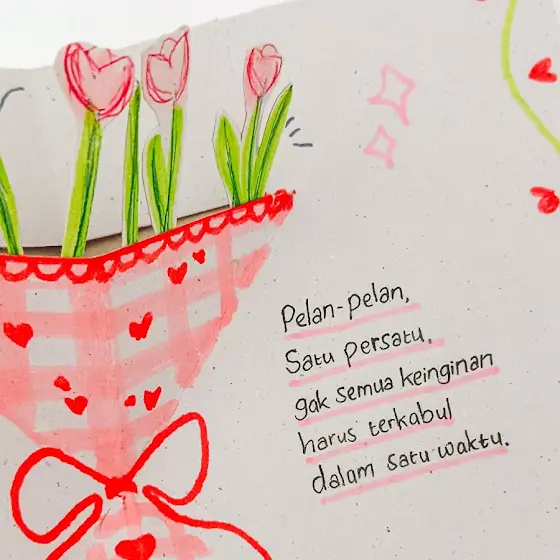 Pelan-pelan,
Satu persatu,
gak semua keinginan
harus terkabul
dalam satu waktu.